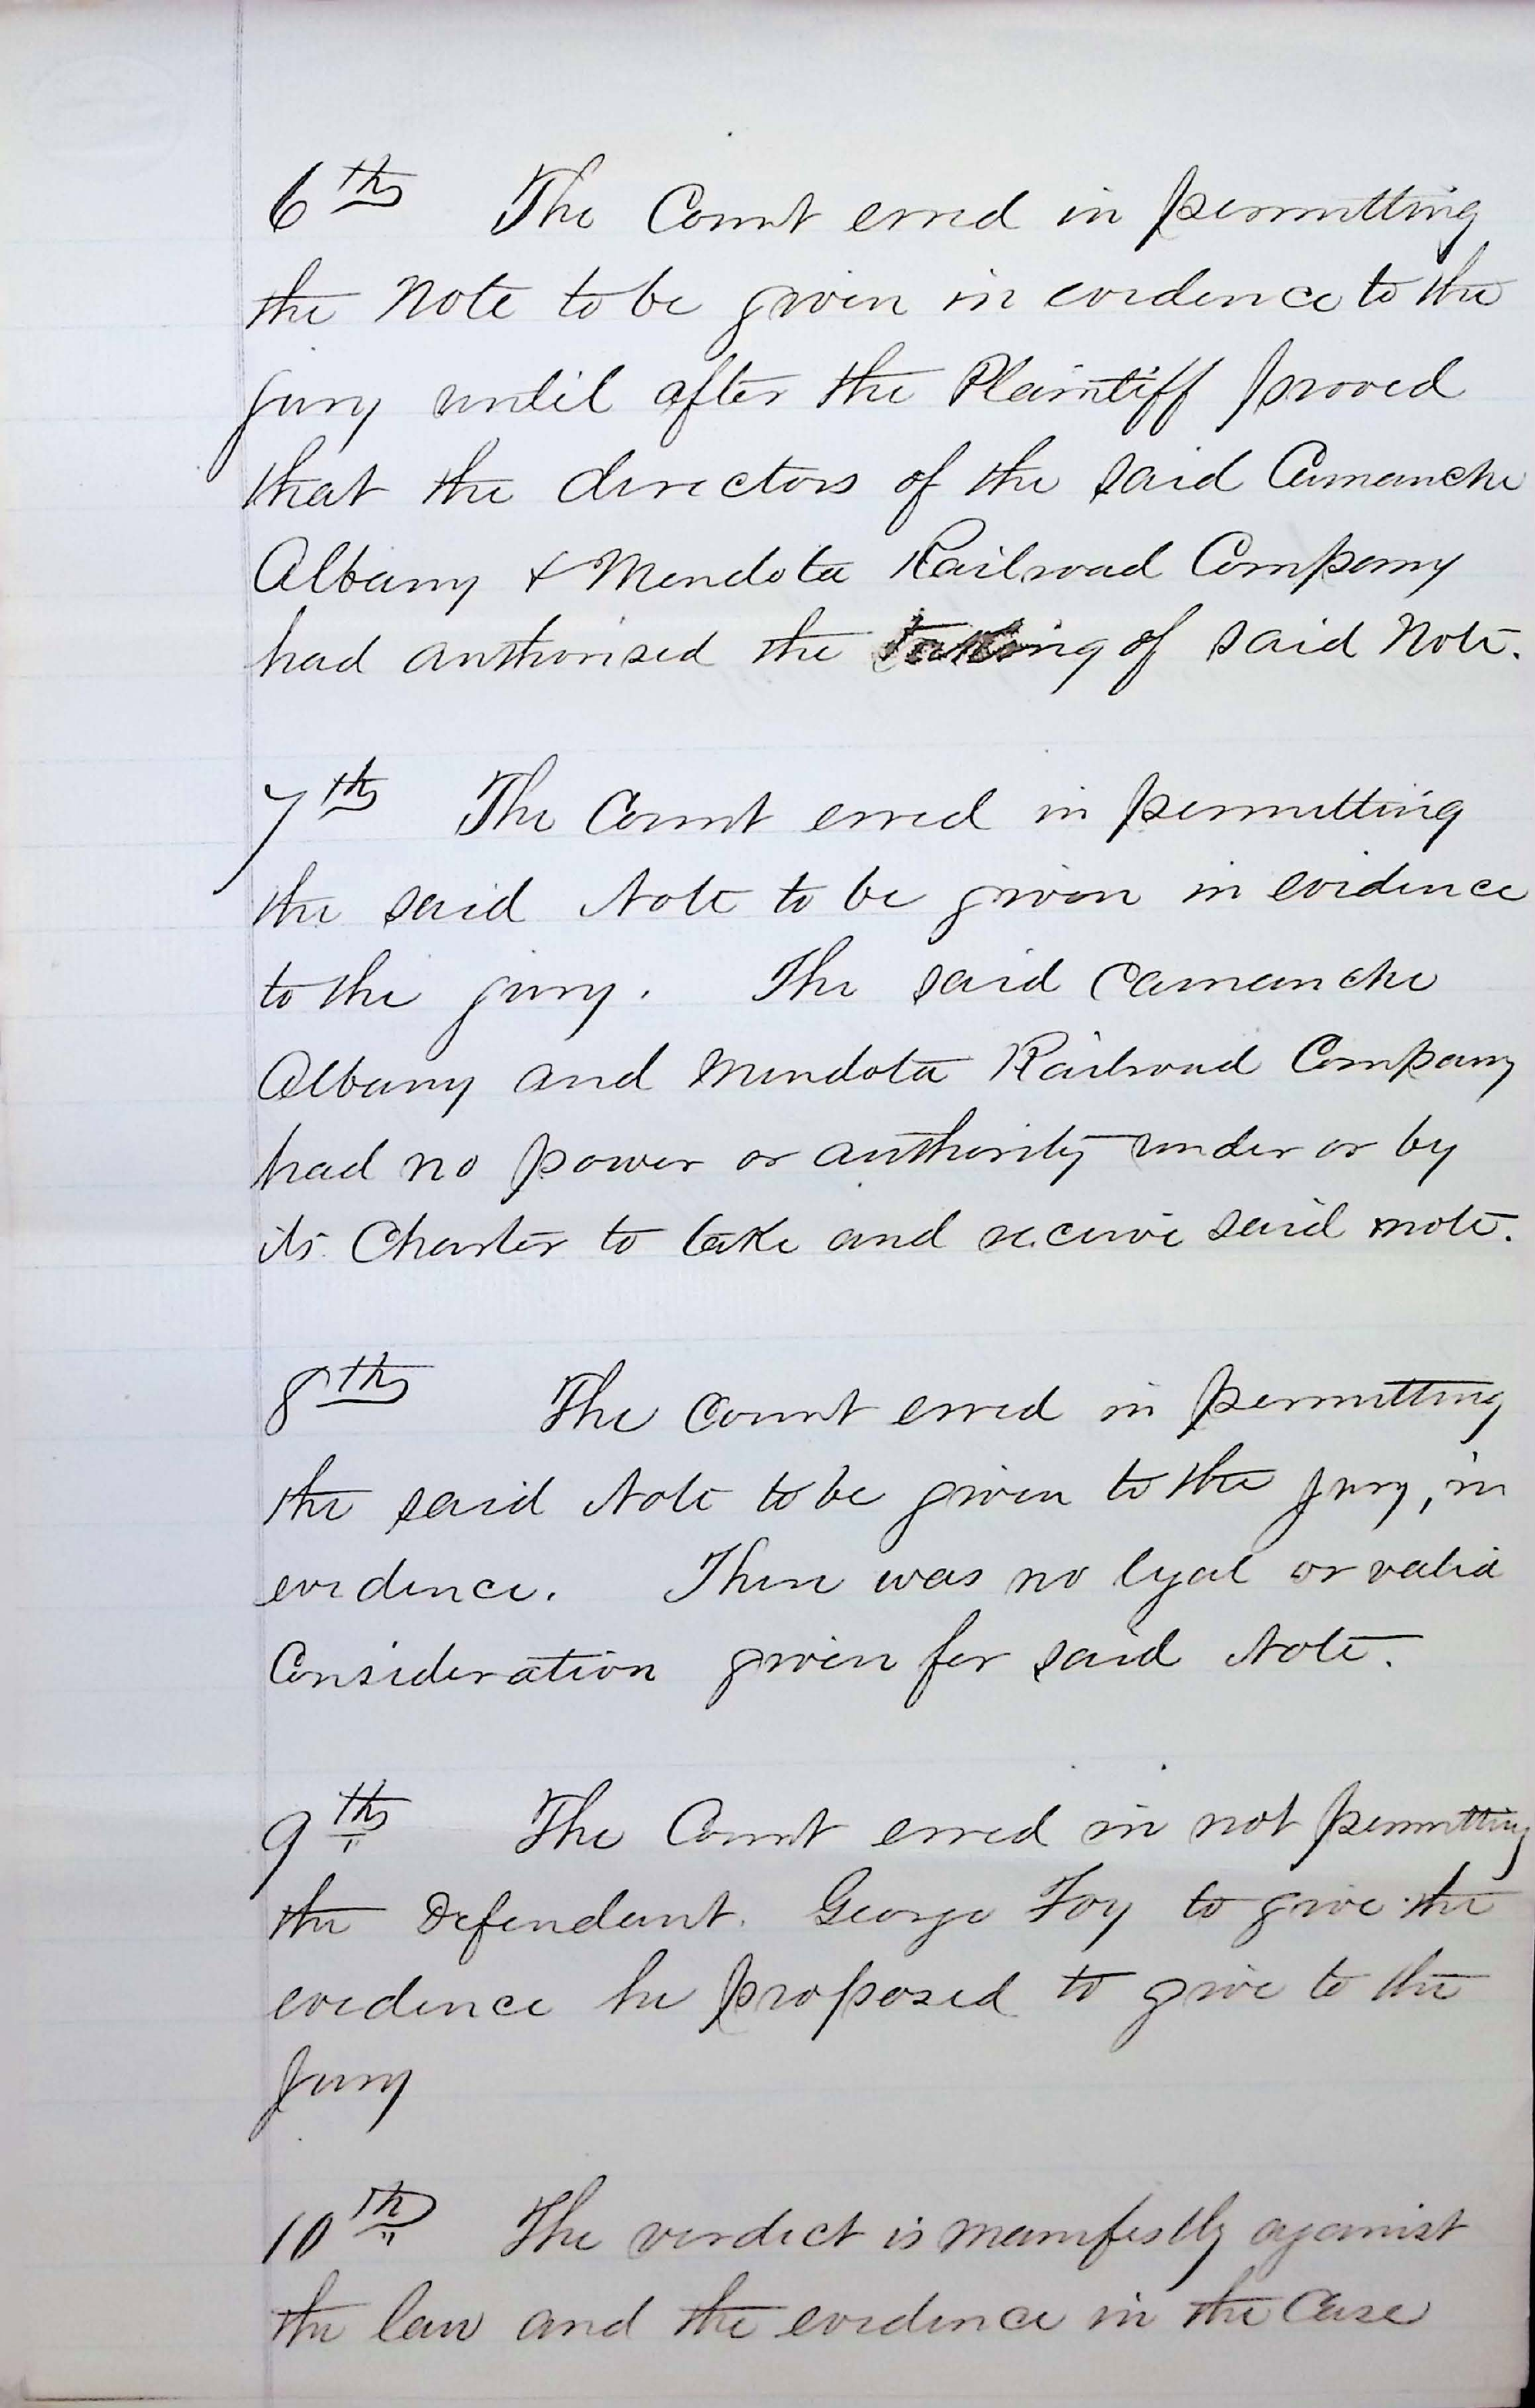 6th The Court erred in permitting
the Note to be given in evidence to the
jury until after the Plaintiff proved
that the directors of the said Camanche
Albany & Mendota Railroad Company
had authorised the taking of said Note.
7th The Court erred in permitting
the said Note to be given in evidence
to the jury. The said Camanche
Albany and Mendota Railroad Company
had no power or authority under or by
its Charter to take and receive said note.
8th The Court erred in permitting
the said Note to be given to the jury, in
evidence. There was no legal or valid
Consideration given for said Note.
9th The Court erred in not permitting
the Defendant. George Foy to give the
evidence he proposed to give to the
Jury
10th The verdict is manifestly against
the law and the evidence in the Case